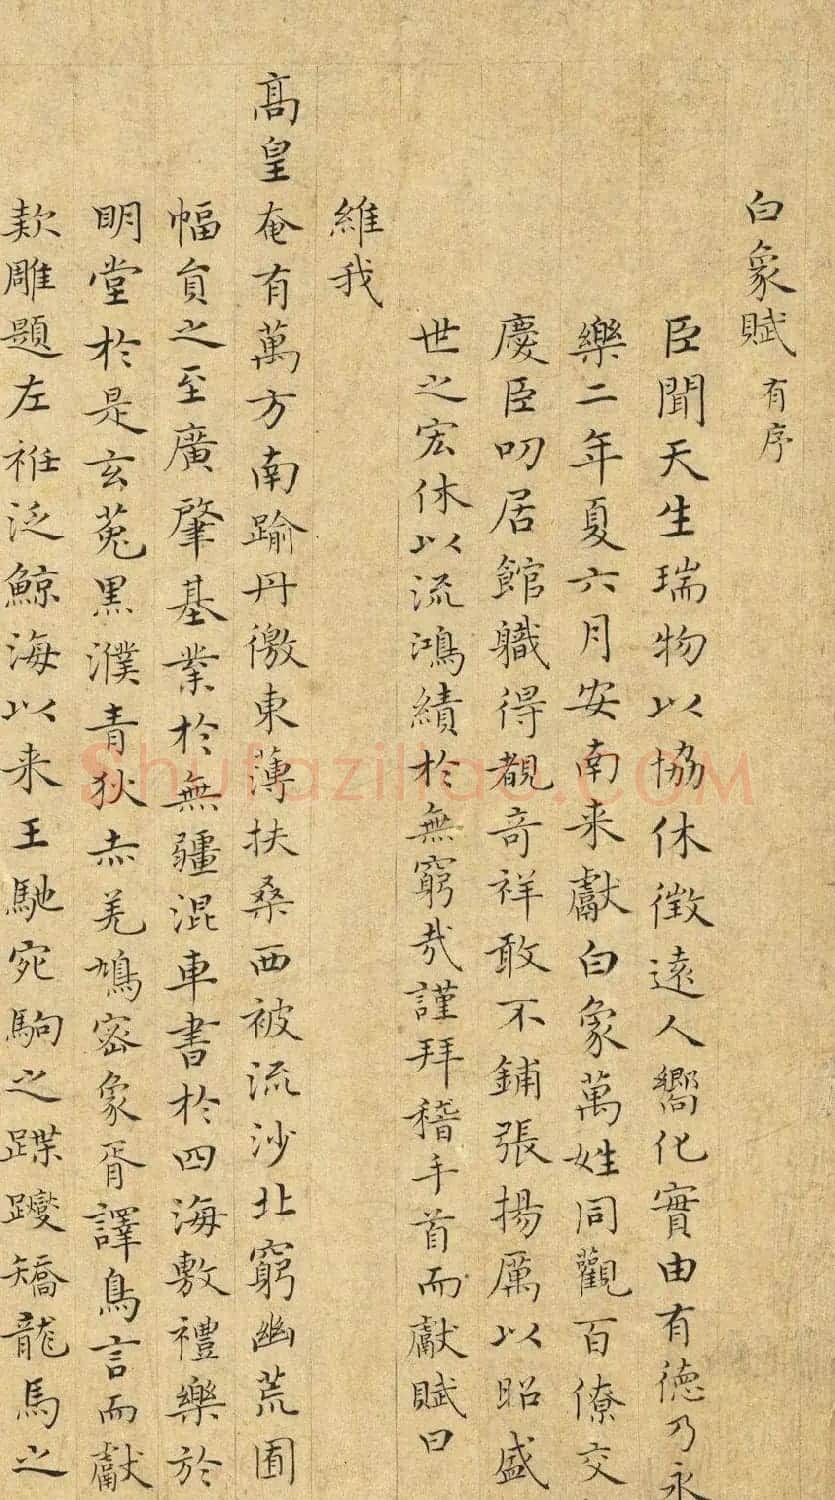 白象賦 有序
臣聞天生瑞物以協休徵遠人嚮化實由有德乃永
樂二年夏六月安南来獻白象萬姓同觀百僚交
慶臣叨居館職得覩奇祥敢不鋪張揚厲以昭盛
世之宏休以流鴻績於無窮哉謹拜稽手首而獻賦曰
維我
髙皇奄有萬方南踰丹徼東薄扶桑西被流沙北窮幽荒囿
幅員之至廣肇基業於無疆混車書於四海敷禮樂於
明堂於是玄菟黒濮青狄赤羌鳩密象胥譯鳥言而獻
款雕題左衽泛鯨海以来王馳宛駒之蹀躞矯龍馬之
Shufaziliao.COM